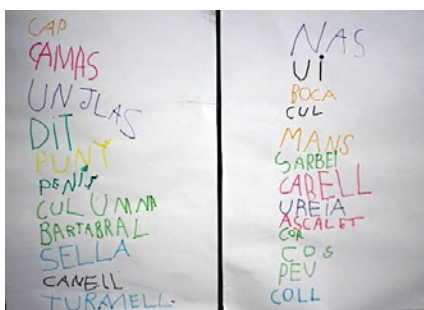 CAP
CAMAS
UNJLAS
DIT
PUNY
PENIS
CULUMNA
BARTABRAL
SELLA
CANELL
TURMELL
NAS
Ui
BOCA
CUL
MANS
SARBEI
CABELL
UREIA
ASCALET
COR
COS
PEU
COLL